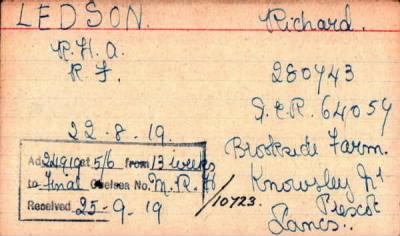 LEDSON. Richard.
R.H.A. 280743
R.F.
D.C.R. 64054
22-8-19.
Brookside Farm.
Ad 24919 et 5/6 from 13 weeks
to Final Chelsea No. M.R.H
Knowsley Nr
/10723. Prescot
Received 25-9-19
Lancs.